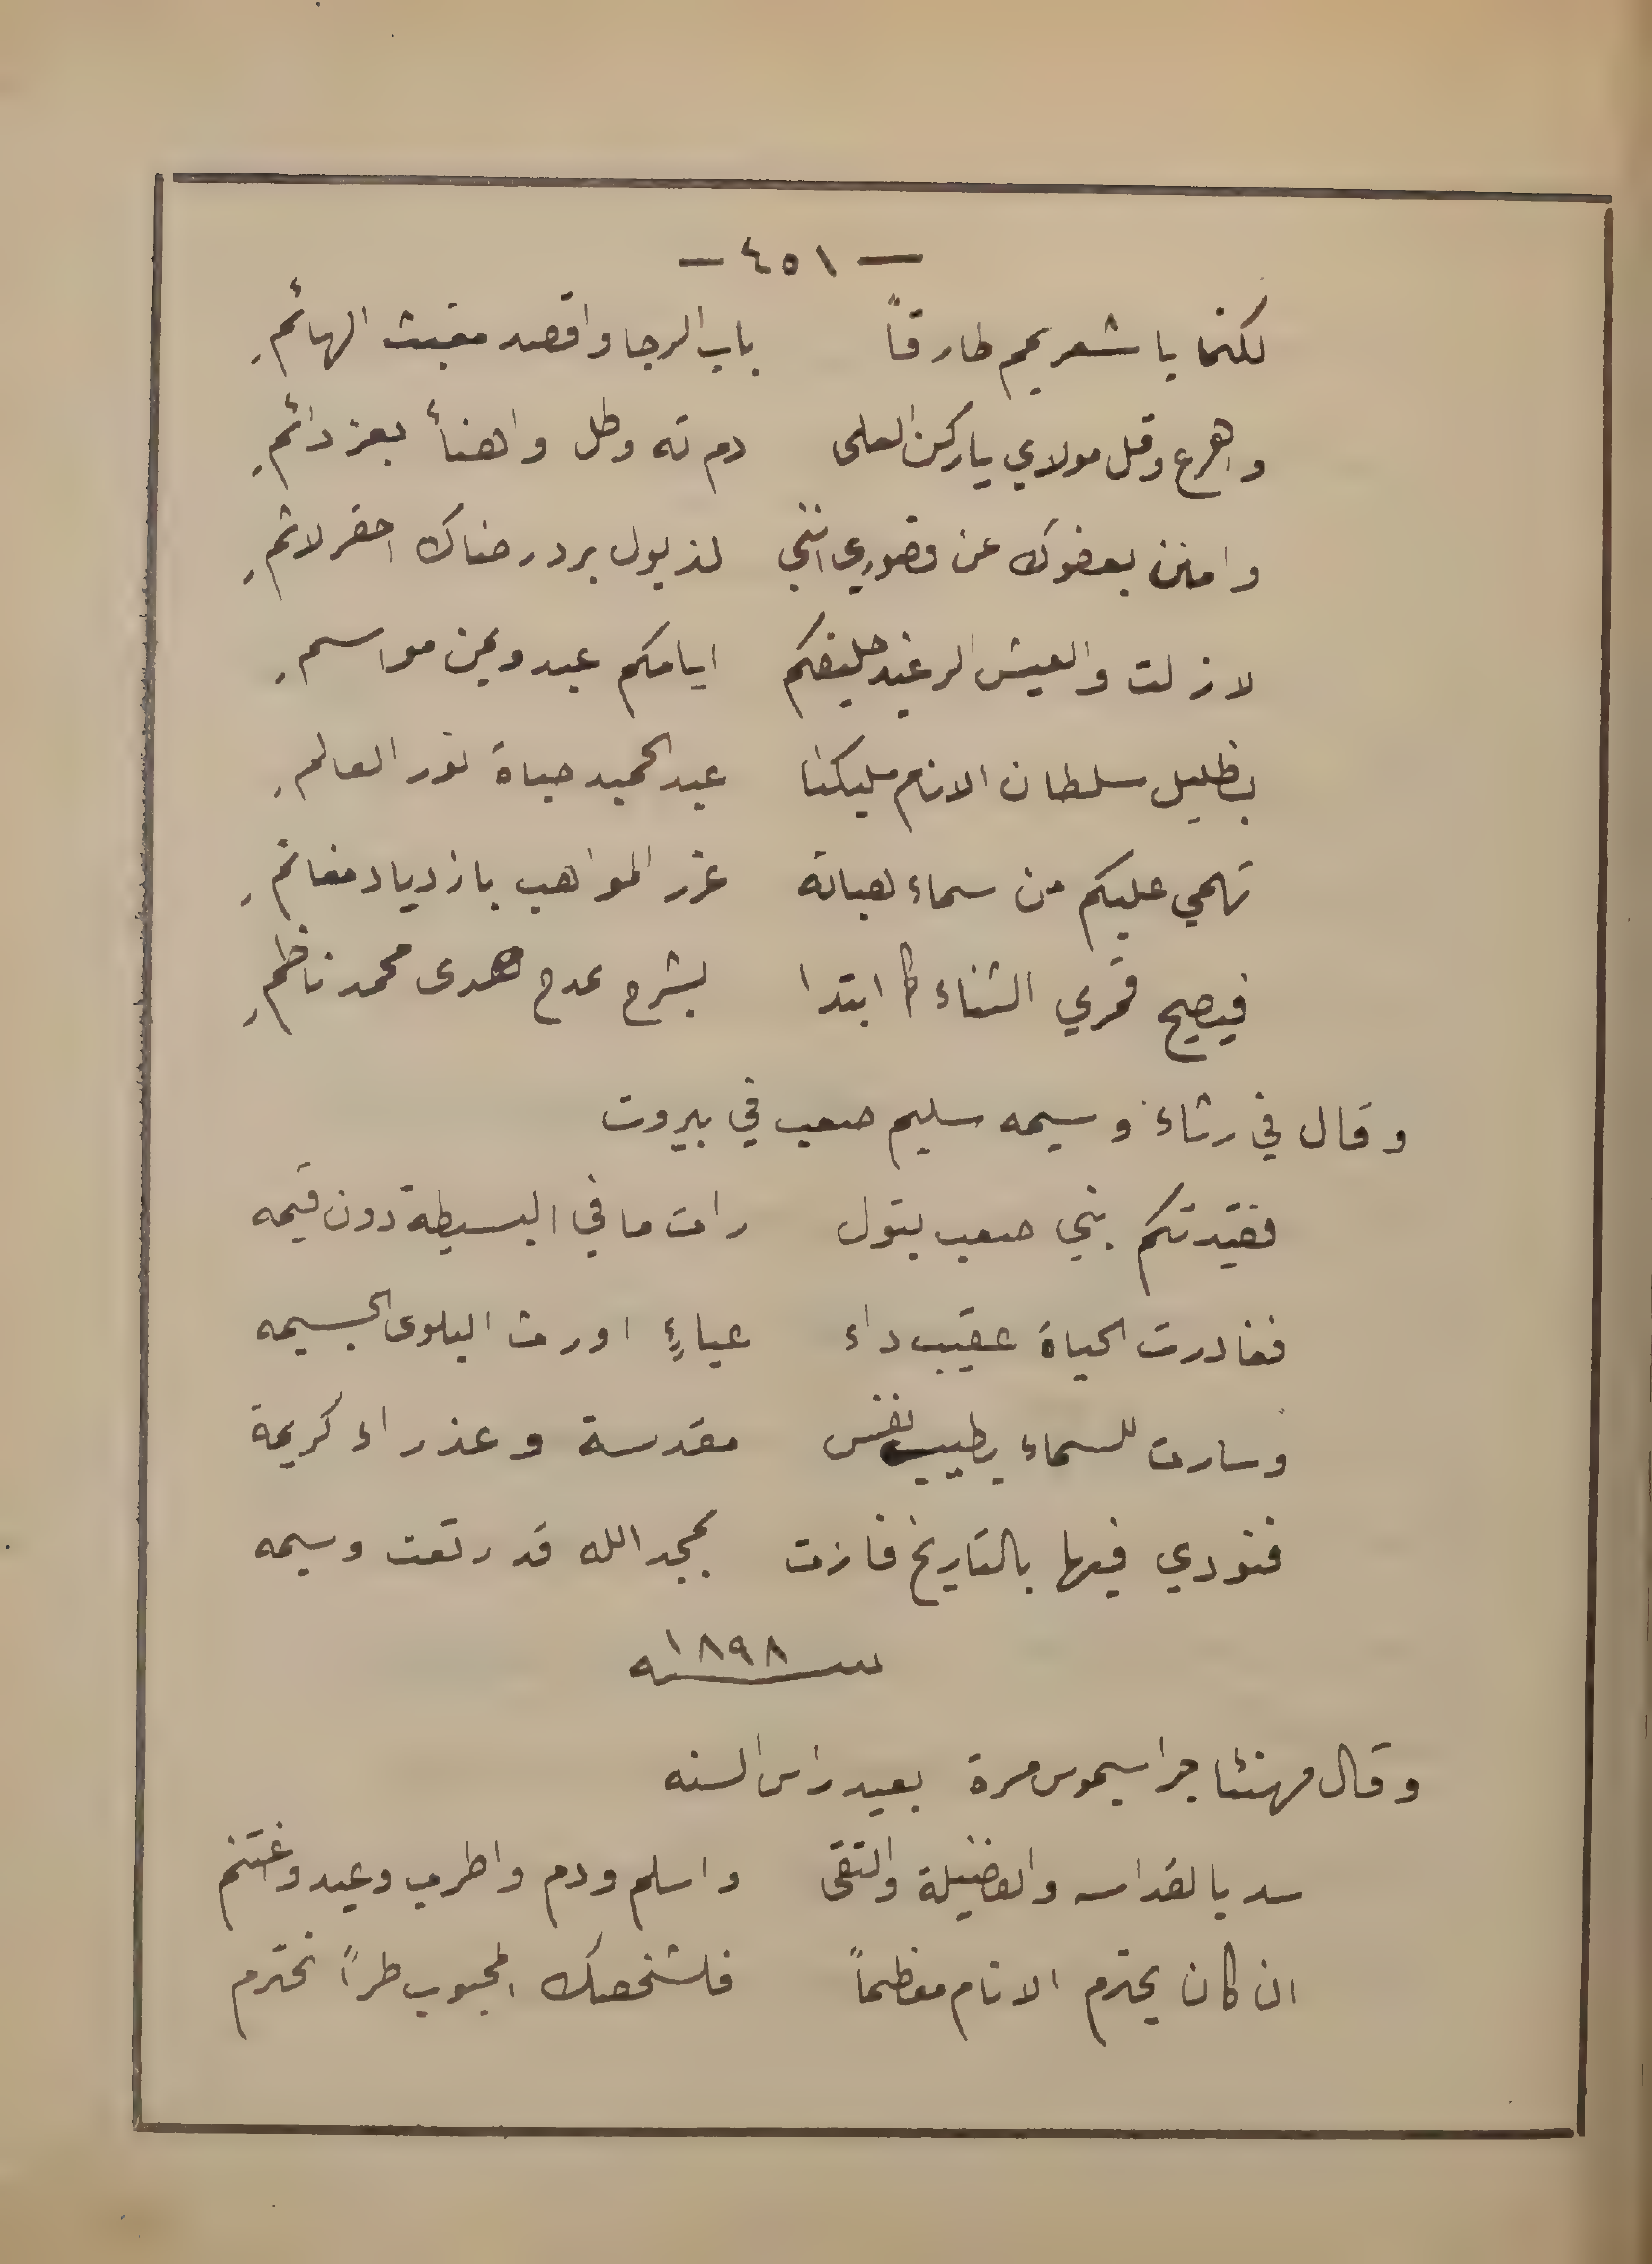 — ٤٥١ —
لكنما يا شعر يمم طارقاً باب الرجا واقصد مغيث الهائمِ
واهرع وقل مولاي يا ركن العلى دم ته وطل واهنأ بعز دائمِ
وامنن بعفوك عن قصوري انني لذيول برد رضاك احقر لاثمِ
لازلت والعيش الرغيد حليفكم ايامكم عيد ويمن مواسمِ
بظليل سلطان الانام مليكنا عبد الحميد حياة نور العالمِ
تهمي عليكم من سماء هباته غرر المواهب بازدياد مغانمِ
فيصيح قمري الثناء كما ابتدا بشرح بمدح هدى محمد ناظمِ
وقال في رثاء وسيمه سليم صعب في بيروت
فقيدتكم بني صعب بتول رات ما في البسيطة دون قيمه
فغادرت الحياة عقيب داء عياءٍ اورث البلوى الجسيمه
وسارت للسماء بطيب نفس مقدسة وعذراء كريمة
فنودي فيها بالتاريخ فازت بمجد الله قد رتعت وسيمه
سنه ١٨٩٨
وقال مهنئا جراسيموس مسرة بعيد راس السنه
سد بالقداسه والفضيلة والتقى واسلم ودم واطرب وعيد واغتنم
ان كان يحترم الانام معظماً فلشخصك المحبوب طراً نحترم